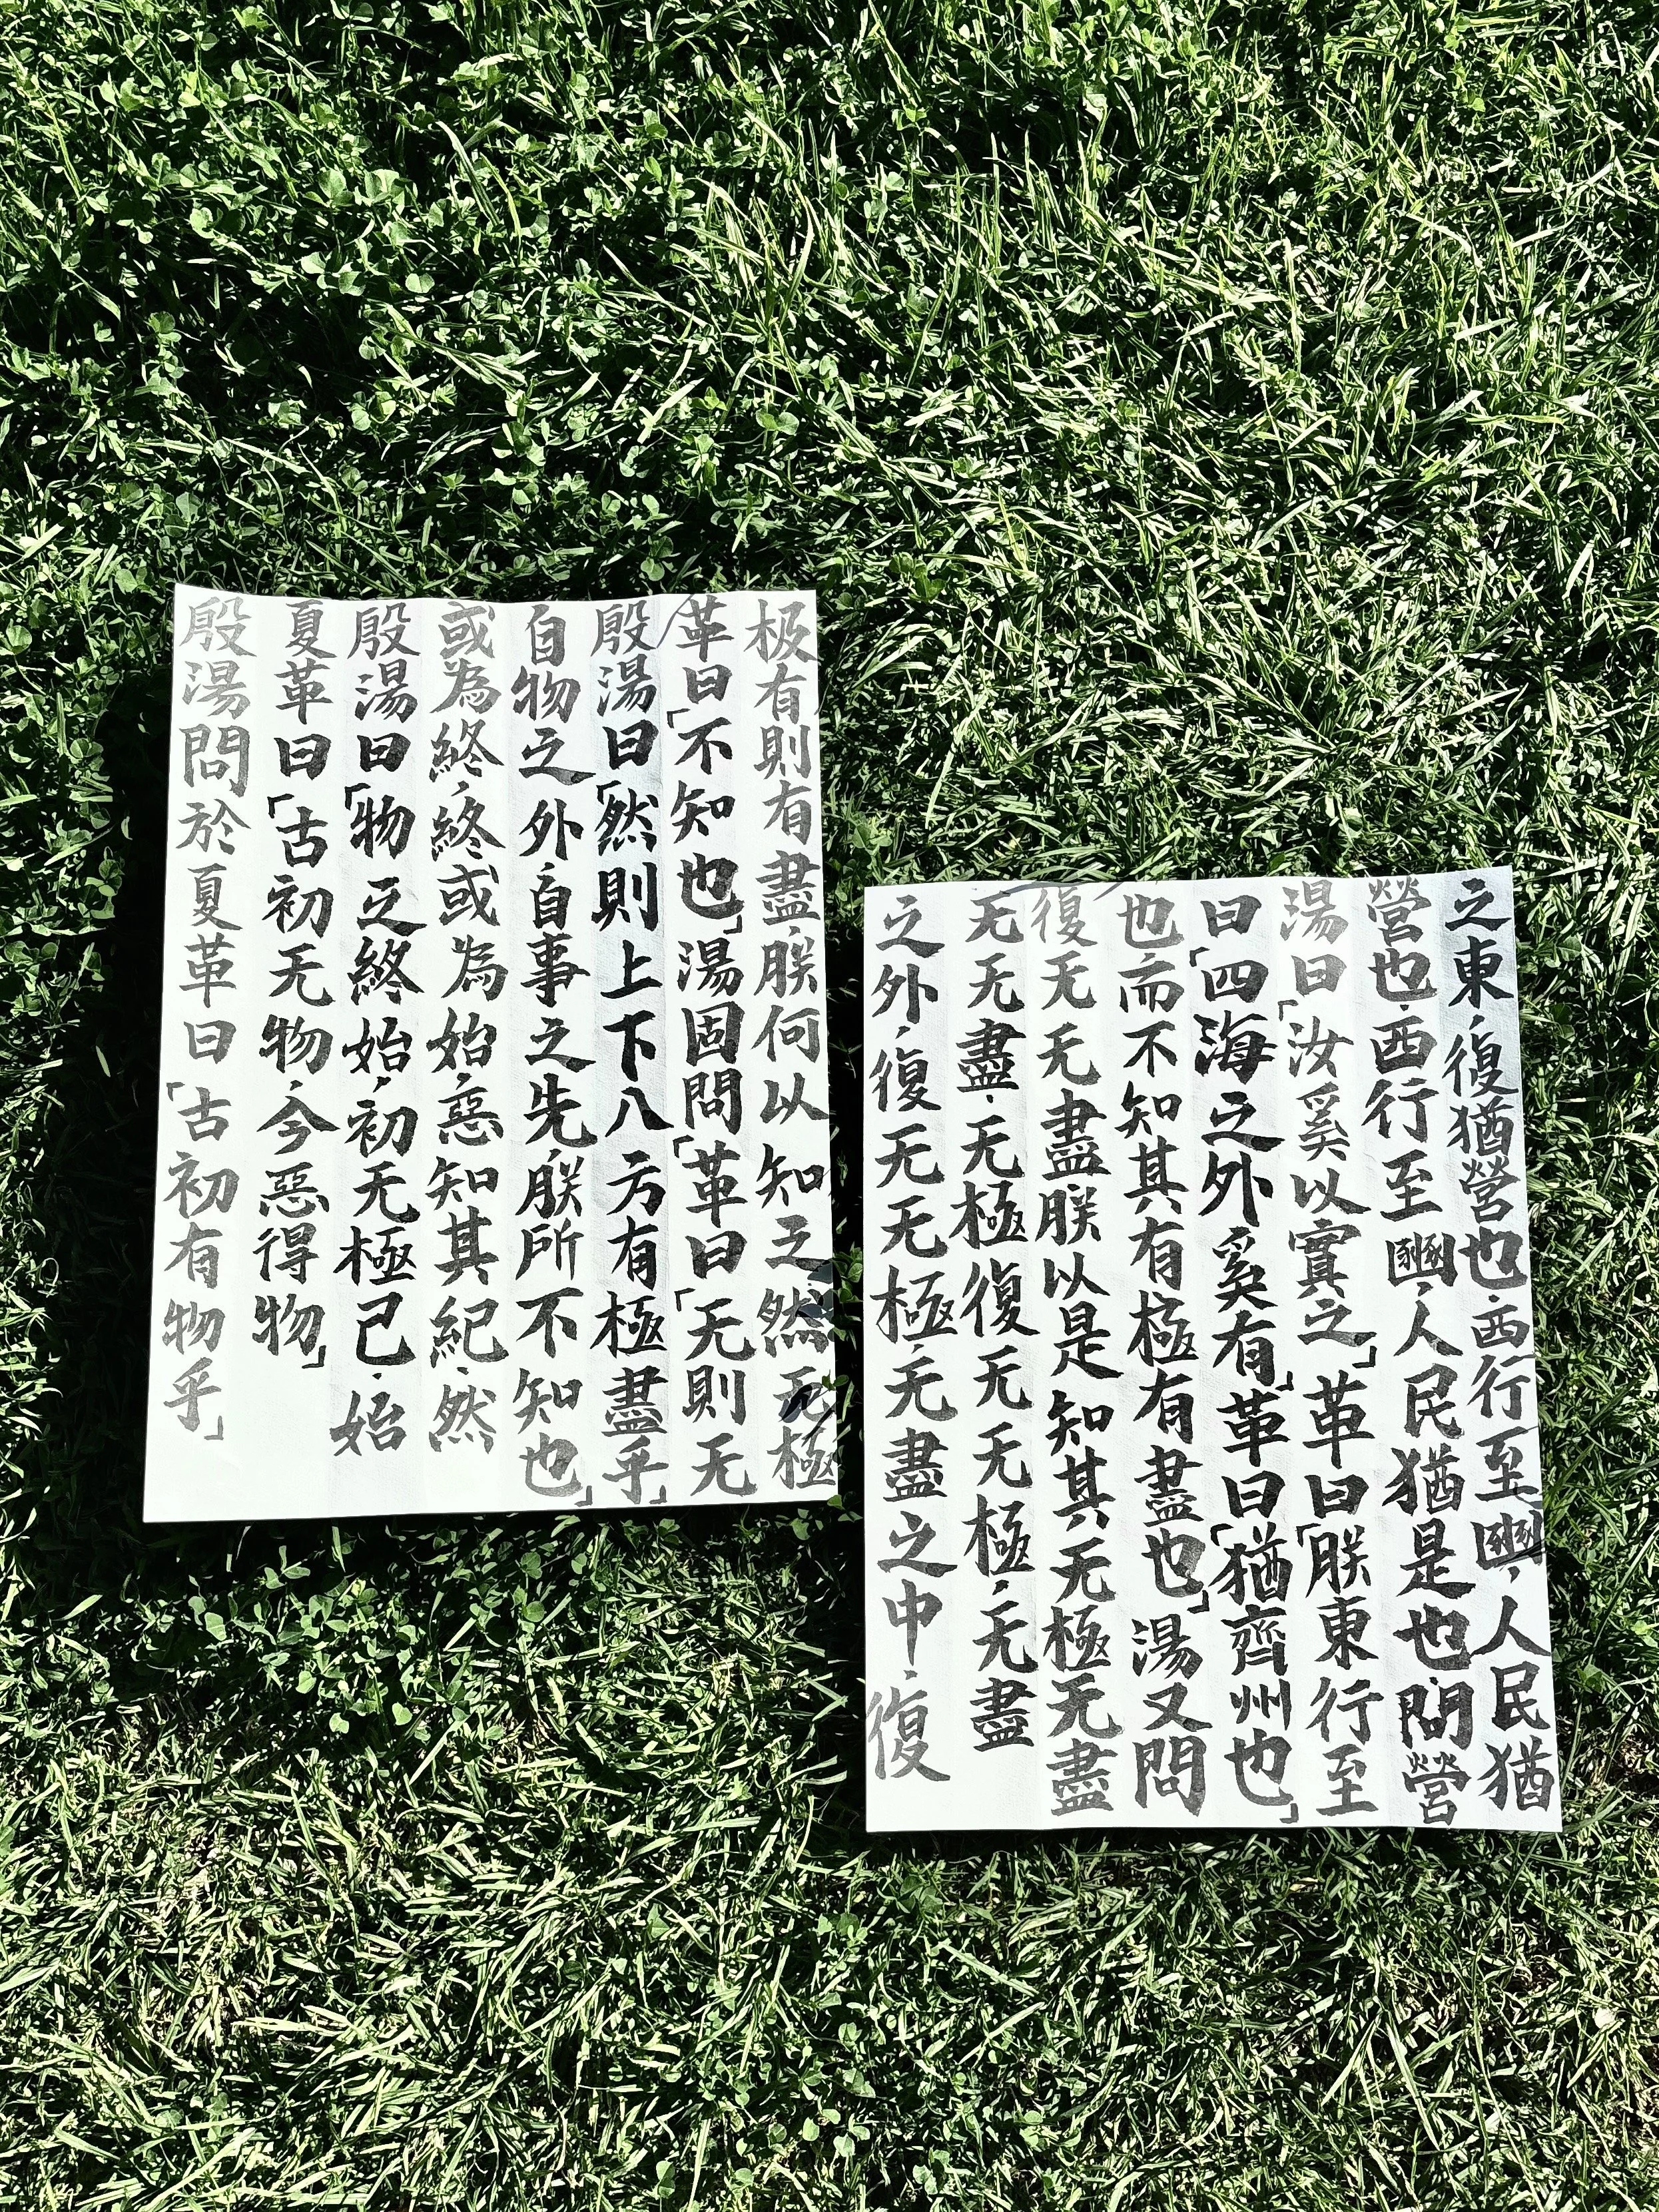 殷湯問於夏革曰「古初有物乎」
夏革曰「古初无物,今惡得物」
殷湯曰「物之終始,初无極己.始
或為終,終或為始.惡知其紀.然
自物之外,自事之先,朕所不知也」
殷湯曰「然則上下八方有極盡乎」
革曰「不知也」湯固問「革曰「无則无
极有則有盡.朕何以知之然无極
之外,復无无極,无盡之中,復
无无盡.无極復无无極,无盡
復无无盡朕以是知其无極无盡
也而不知其有極有盡也」湯又問
曰「四海之外奚有」革曰「猶齊州也」
湯曰「汝奚以實之」革曰「朕東行至
營也.西行至豳,人民猶是也問營
之東,復猶營也.西行至豳,人民猶